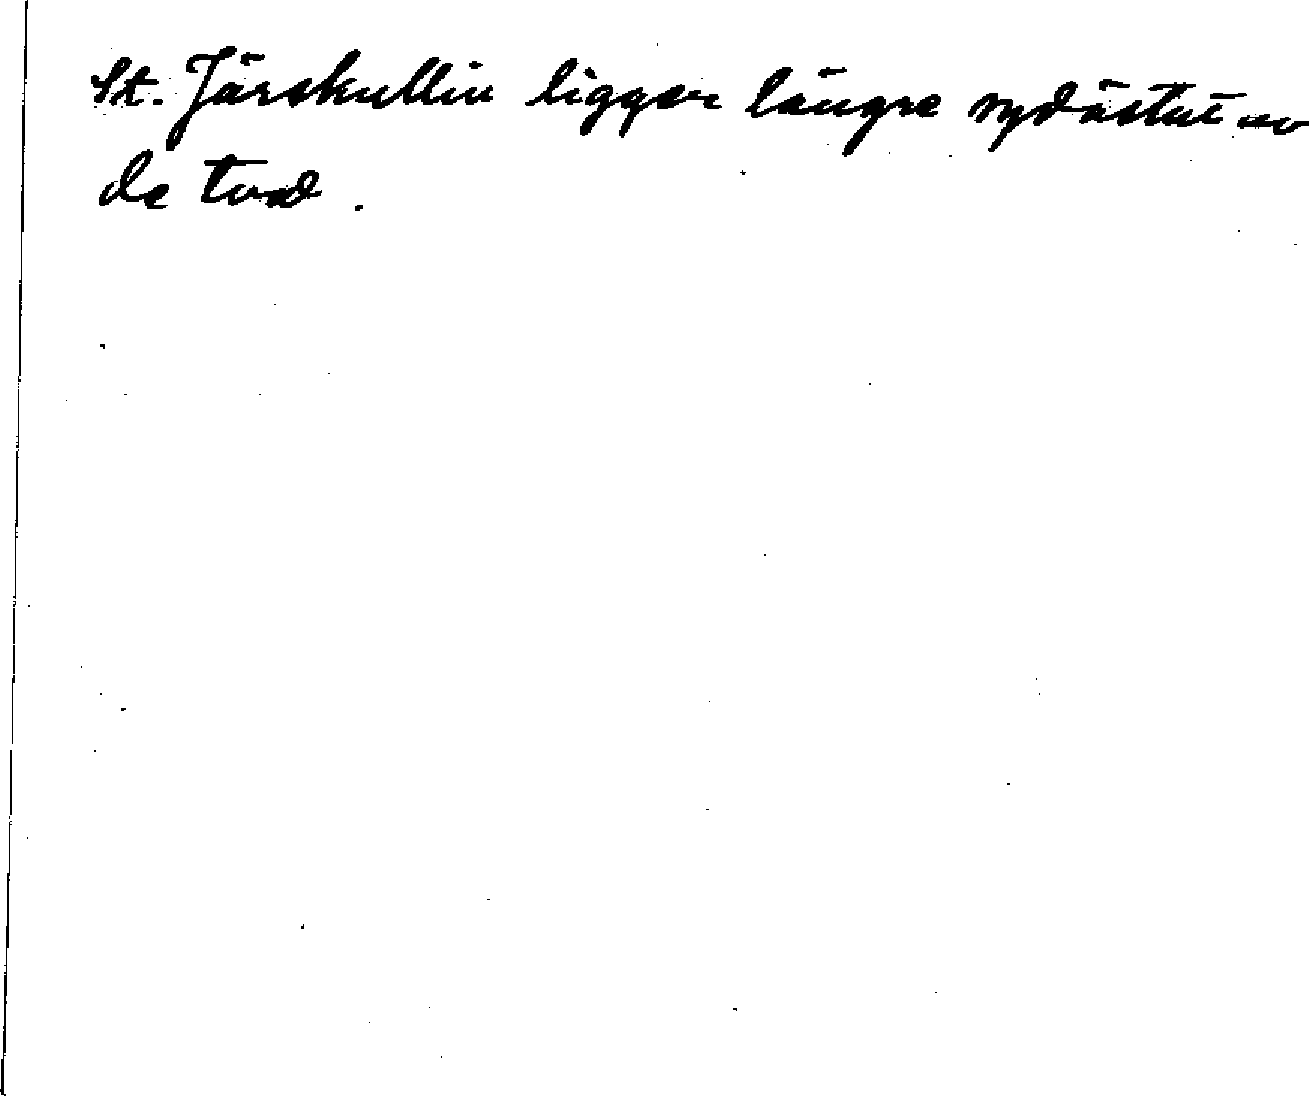 St. Järskullin ligger längre sydästut av
de två.